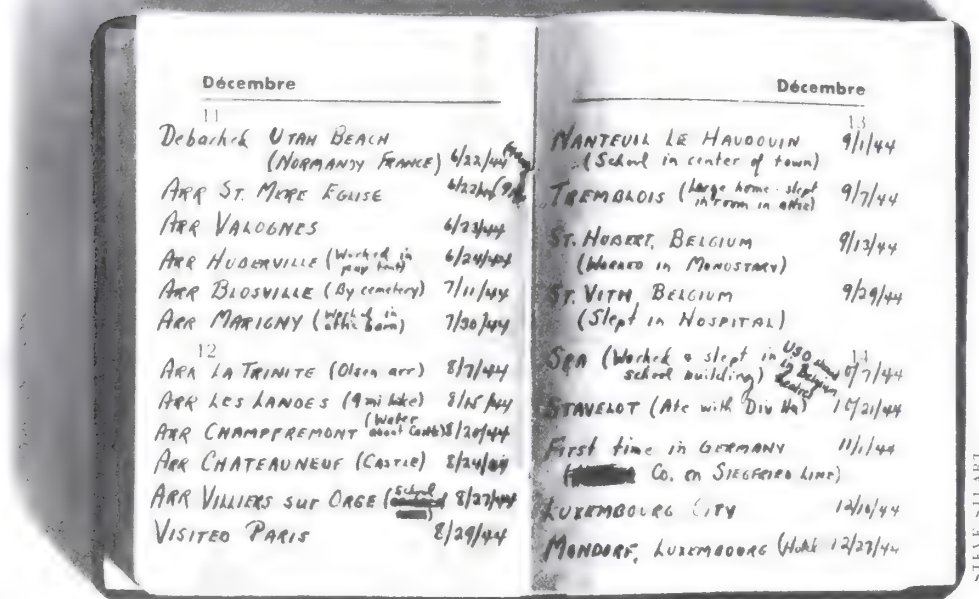 Décembre
11
Debarked UTAH BEACH
(NORMANDY FRANCE) 6/22/44
ARR ST. MERE EGLISE 6/22/44
ARR VALOGNES 6/23/44
ARR HUBERVILLE (Worked in
pay tent) 6/24/44
ARR BLOSVILLE (By cemetery) 7/11/44
ARR MARIGNY (Worked in
attic barn) 7/30/44
12
ARR LA TRINITE (Olsen arr) 8/7/44
ARR LES LANDES (9 mi hike) 8/15/44
ARR CHAMPFREMONT (Water
about) 8/20/44
ARR CHATEAUNEUF (CASTLE) 8/24/44
ARR VILLIERS SUR ORGE (School) 8/27/44
VISITED PARIS 8/29/44
Décembre
13
NANTEUIL LE HAUDOUIN 9/1/44
(School in center of town)
TREMBLOIS (Large home - slept
in room in attic) 9/7/44
ST. HUBERT, BELGIUM 9/13/44
(WORKED in MONOSTARY)
ST. VITH, BELGIUM 9/29/44
(Slept in HOSPITAL)
14
SPA (Worked & slept in USO show
school building) in Belgium
7/44
STAVELOT (Ate with Div Hq) 10/21/44
First time in GERMANY 11/1/44
Co. on SIEGFRIED LINE)
LUXEMBOURG CITY 12/10/44
MONDORF, LUXEMBOURG (Hotel 12/27/44